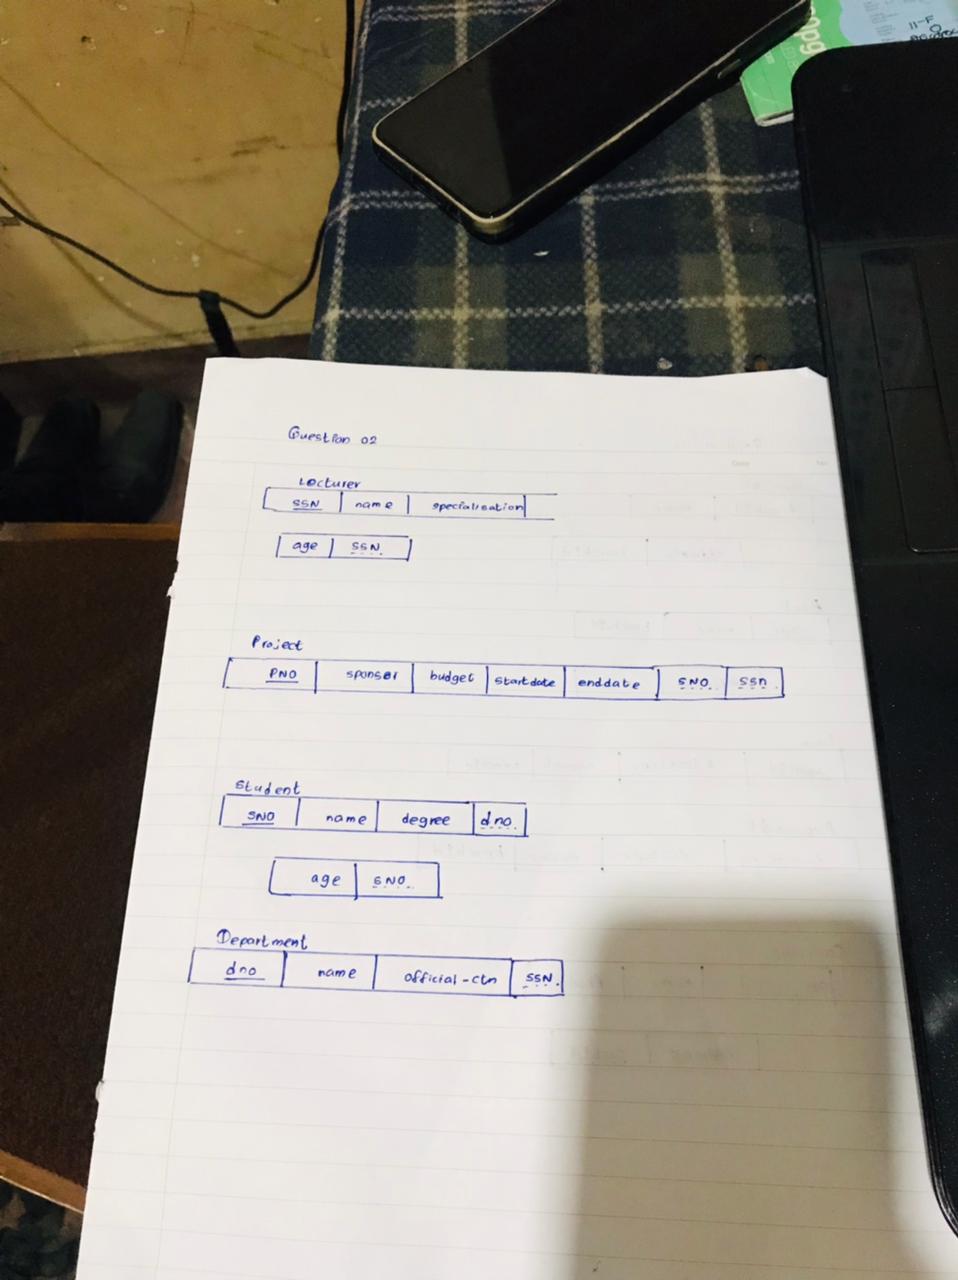 11-F
Question 02
Lecturer
SSN name specialisation
age SSN
Project
PNO sponser budget startdate enddate SNO ssn
Student
SNO name degree dno
age SNO
Department
dno name official-ctn SSN